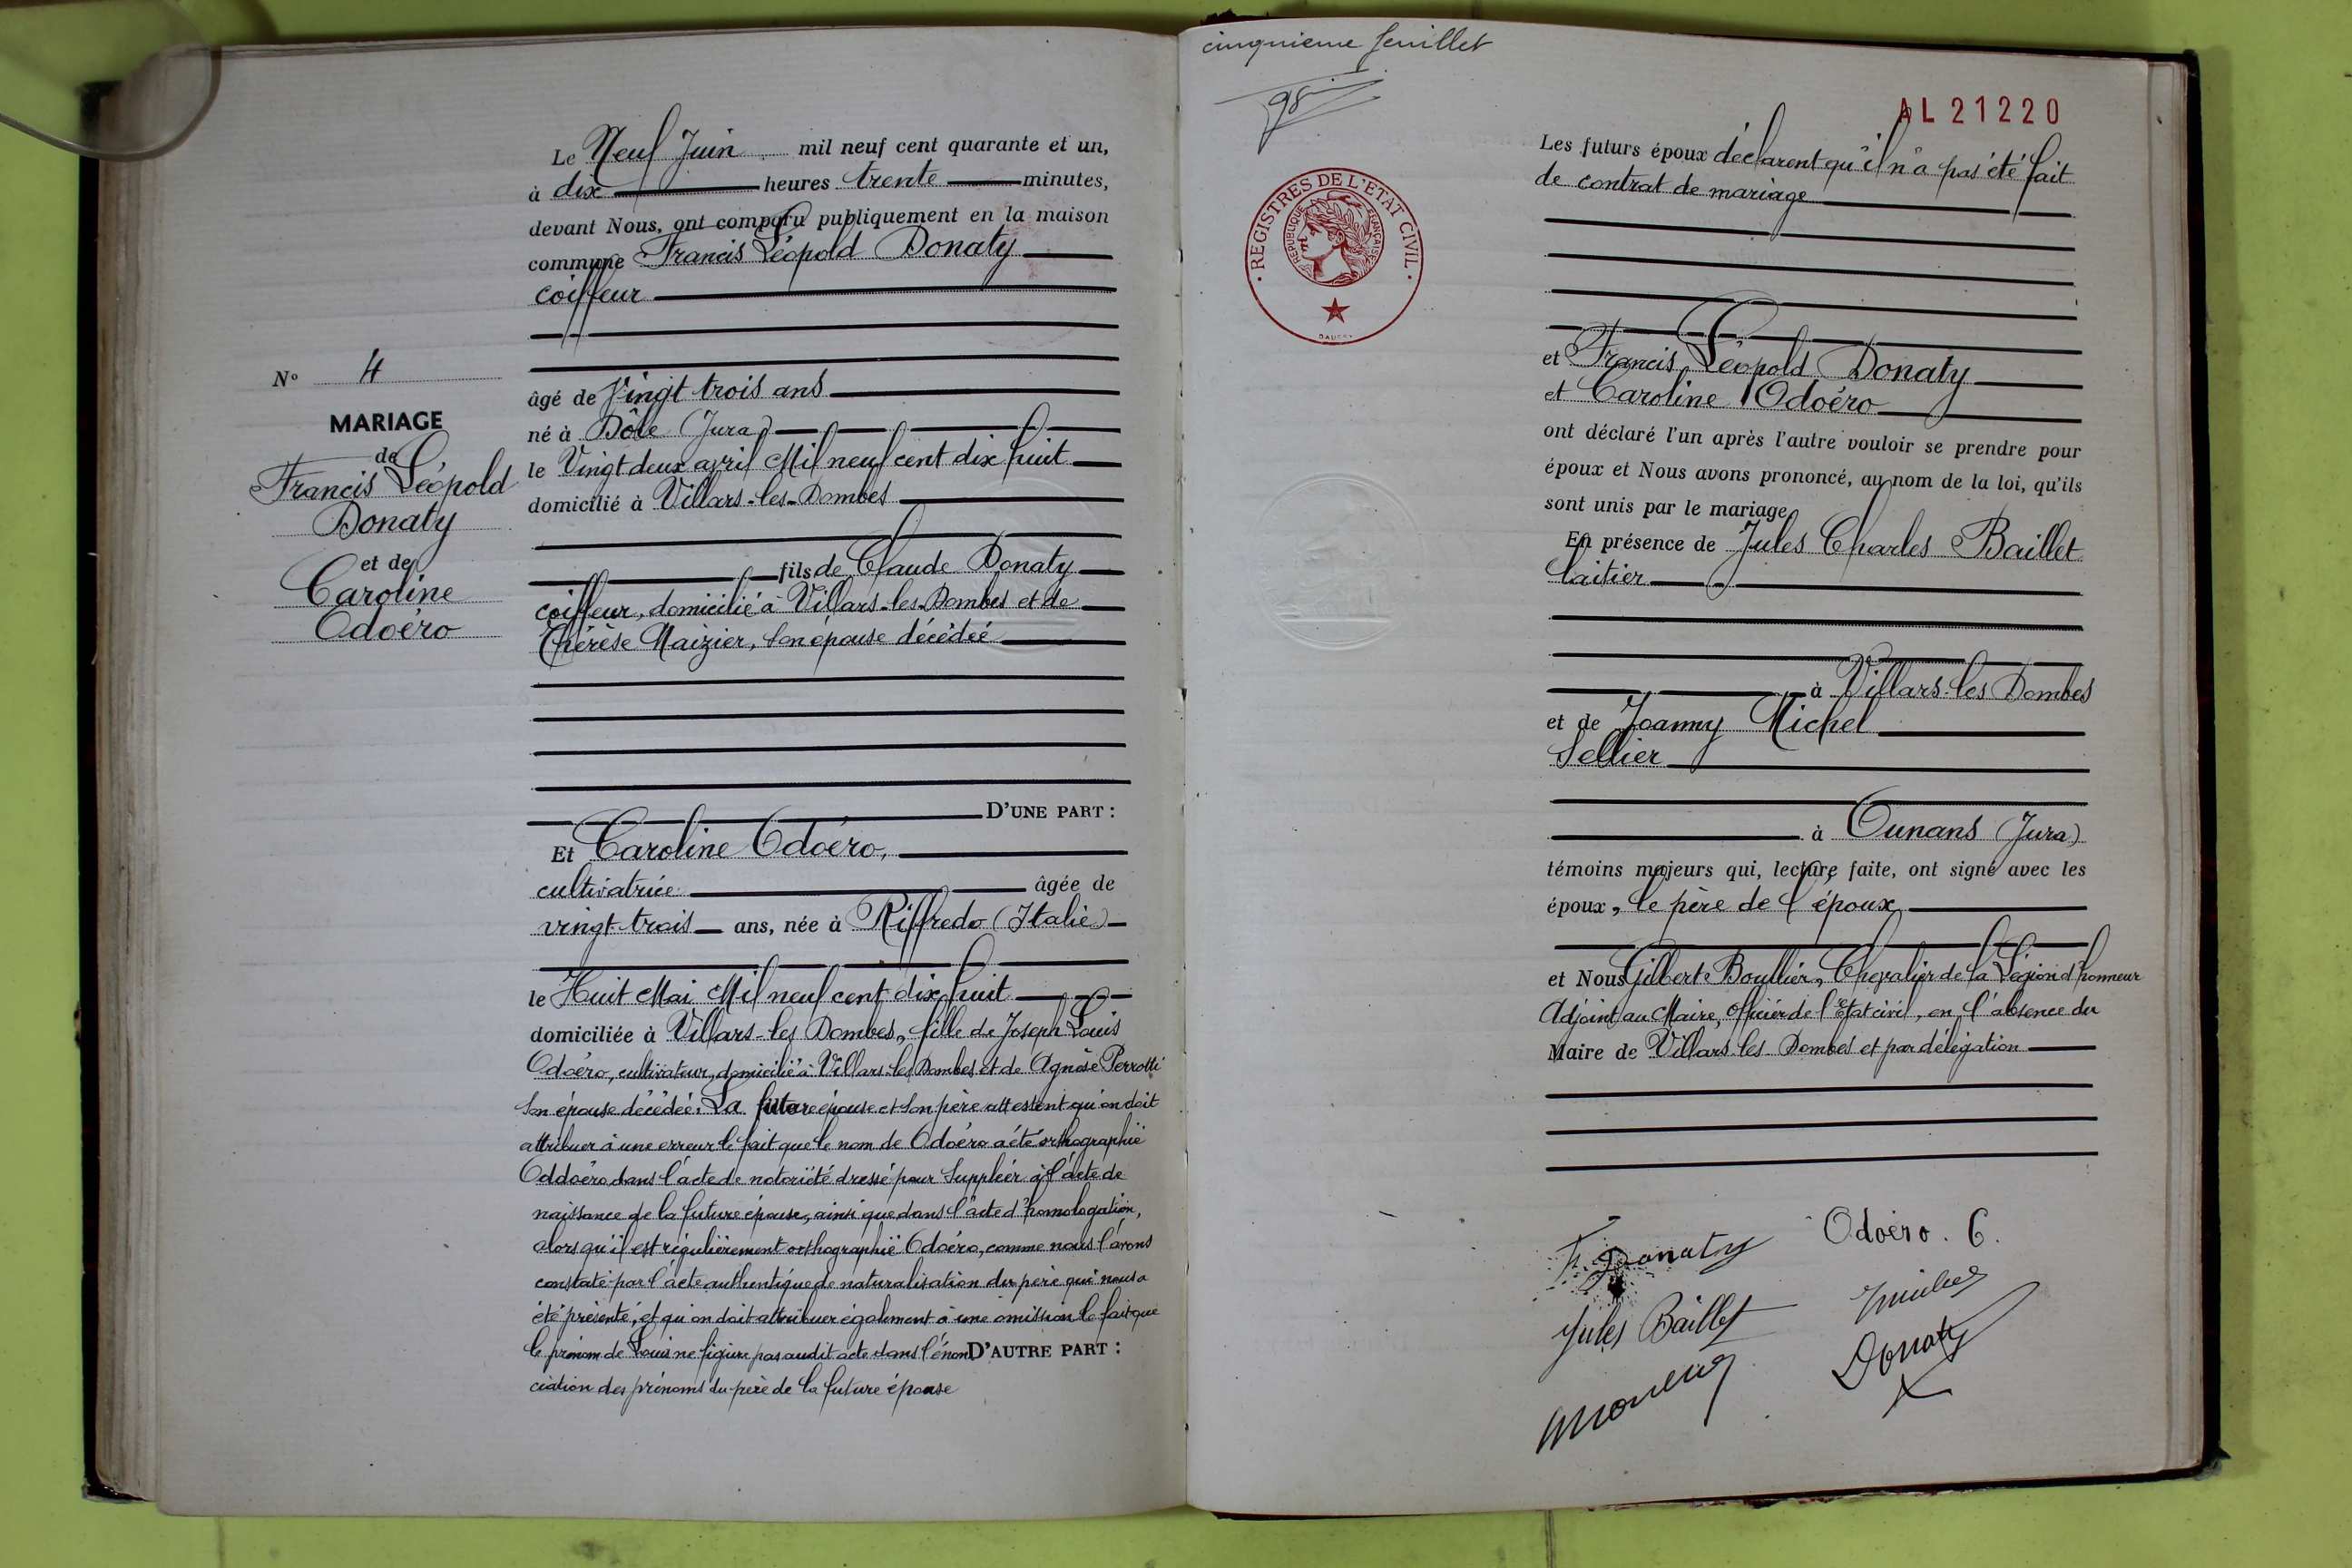 Le Neuf Juin mil neuf cent quarante et un,
à dix heures trente minutes,
devant Nous, ont comparu publiquement en la maison
commune Francis Léopold Donaty
coiffeur
N° 4
MARIAGE
de
Francis Léopold
Donaty
et de
Caroline
Odoéro
âgé de vingt trois ans
né à Dôle (Jura)
le Vingt deux avril Mil neuf cent dix huit
domicilié à Villars-les-Dombes
fils de Claude Donaty
coiffeur, domicilié à Villars-les-Dombes et de
Thérèse Maizier, son épouse décédée
D'UNE PART :
Et Caroline Odoéro,
cultivatrice âgée de
vingt-trois ans, née à Riffredo (Italie)
le Huit Mai Mil neuf cent dix huit
domiciliée à Villars-les Dombes, fille de Joseph Louis
Odoéro, cultivateur, domicilié à Villars-les Dombes et de Agnèse Perrotti
son épouse décédée. La future épouse et son père attestent qu'on doit
attribuer à une erreur le fait que le nom de Odoéro a été orthographié
Oddoéro dans l'acte de notoriété dressé pour suppléer à l'acte de
naissance de la future épouse, ainsi que dans l'acte d'homologation,
alors qu'il est régulièrement orthographié Odoéro, comme nous l'avons
constaté par l'acte authentique de naturalisation du père qui nous a
été présenté, et qu'on doit attribuer également à une omission le fait que
le prénom de Louis ne figure pas audit acte dans l'énon D'AUTRE PART :
ciation des prénoms du père de la future épouse
cinquième feuillet
98
AL 21220
REGISTRES DE L'ETAT CIVIL
REPUBLIQUE FRANÇAISE
Les futurs époux déclarent qu'il n'a pas été fait
de contrat de mariage
et Francis Léopold Donaty
et Caroline Odoéro
ont déclaré l'un après l'autre vouloir se prendre pour
époux et Nous avons prononcé, au nom de la loi, qu'ils
sont unis par le mariage
En présence de Jules Charles Baillet
laitier
à Villars-les Dombes
et de Joanny Michel
Sellier
à Ounans (Jura)
témoins majeurs qui, lecture faite, ont signé avec les
époux, le père de l'époux
et Nous Gilbert Boullier, Chevalier de la Légion d'honneur
Adjoint au Maire, officier de l'Etat civil, en l'absence du
Maire de Villars-les-Dombes et par délégation
F. Donaty
Odoéro. C.
Jules Baillet
Donaty